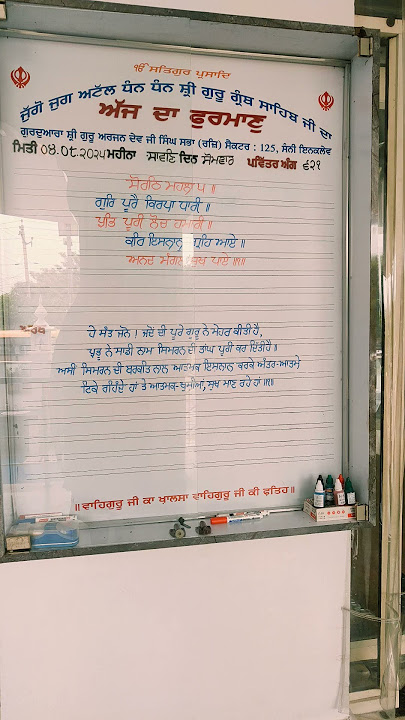 ੴ ਸਤਿਗੁਰ ਪ੍ਰਸਾਦਿ
ਜੁੱਗੋ ਜੁਗ ਅਟੱਲ ਧੰਨ ਧੰਨ ਸ਼੍ਰੀ ਗੁਰੂ ਗ੍ਰੰਥ ਸਾਹਿਬ ਜੀ ਦਾ
ਅੱਜ ਦਾ ਫੁਰਮਾਣੁ
ਗੁਰਦੁਆਰਾ ਸ਼੍ਰੀ ਗੁਰੂ ਅਰਜਨ ਦੇਵ ਜੀ ਸਿੰਘ ਸਭਾ (ਰਜਿ) ਸੈਕਟਰ : 125, ਸੰਨੀ ਇਨਕਲੇਵ
ਮਿਤੀ 04.08.2025 ਮਹੀਨਾ ਸਾਵਣਿ ਦਿਨ ਸੋਮਵਾਰ ਪਵਿੱਤਰ ਅੰਗ ੬੨੧
ਸੋਰਠਿ ਮਹਲਾ ੫ ॥
ਗੁਰਿ ਪੂਰੈ ਕਿਰਪਾ ਧਾਰੀ ॥
ਪ੍ਰਭਿ ਪੂਰੀ ਲੋਚ ਹਮਾਰੀ ॥
ਕਰਿ ਇਸਨਾਨੁ ਗ੍ਰਿਹਿ ਆਏ ॥
ਅਨਦ ਮੰਗਲ ਸੁਖ ਪਾਏ ॥੧॥
ਹੇ ਸੰਤ ਜਨੋ ! ਜਦੋਂ ਦੀ ਪੂਰੇ ਗੁਰੂ ਨੇ ਮੇਹਰ ਕੀਤੀ ਹੈ,
ਪ੍ਰਭੂ ਨੇ ਸਾਡੀ ਨਾਮ ਸਿਮਰਨ ਦੀ ਤਾਂਘ ਪੂਰੀ ਕਰ ਦਿੱਤੀ ਹੈ।
ਅਸੀਂ ਸਿਮਰਨ ਦੀ ਬਰਕਤਿ ਨਾਲ ਆਤਮਕ ਇਸਨਾਨ ਕਰਕੇ ਅੰਤਰ-ਆਤਮੇ
ਟਿਕੇ ਰਹਿੰਦੇ ਹਾਂ ਤੇ ਆਤਮਕ-ਖੁਸ਼ੀਆਂ, ਸੁਖ ਮਾਣ ਰਹੇ ਹਾਂ ॥੧॥
॥ ਵਾਹਿਗੁਰੂ ਜੀ ਕਾ ਖ਼ਾਲਸਾ ਵਾਹਿਗੁਰੂ ਜੀ ਕੀ ਫ਼ਤਿਹ ॥